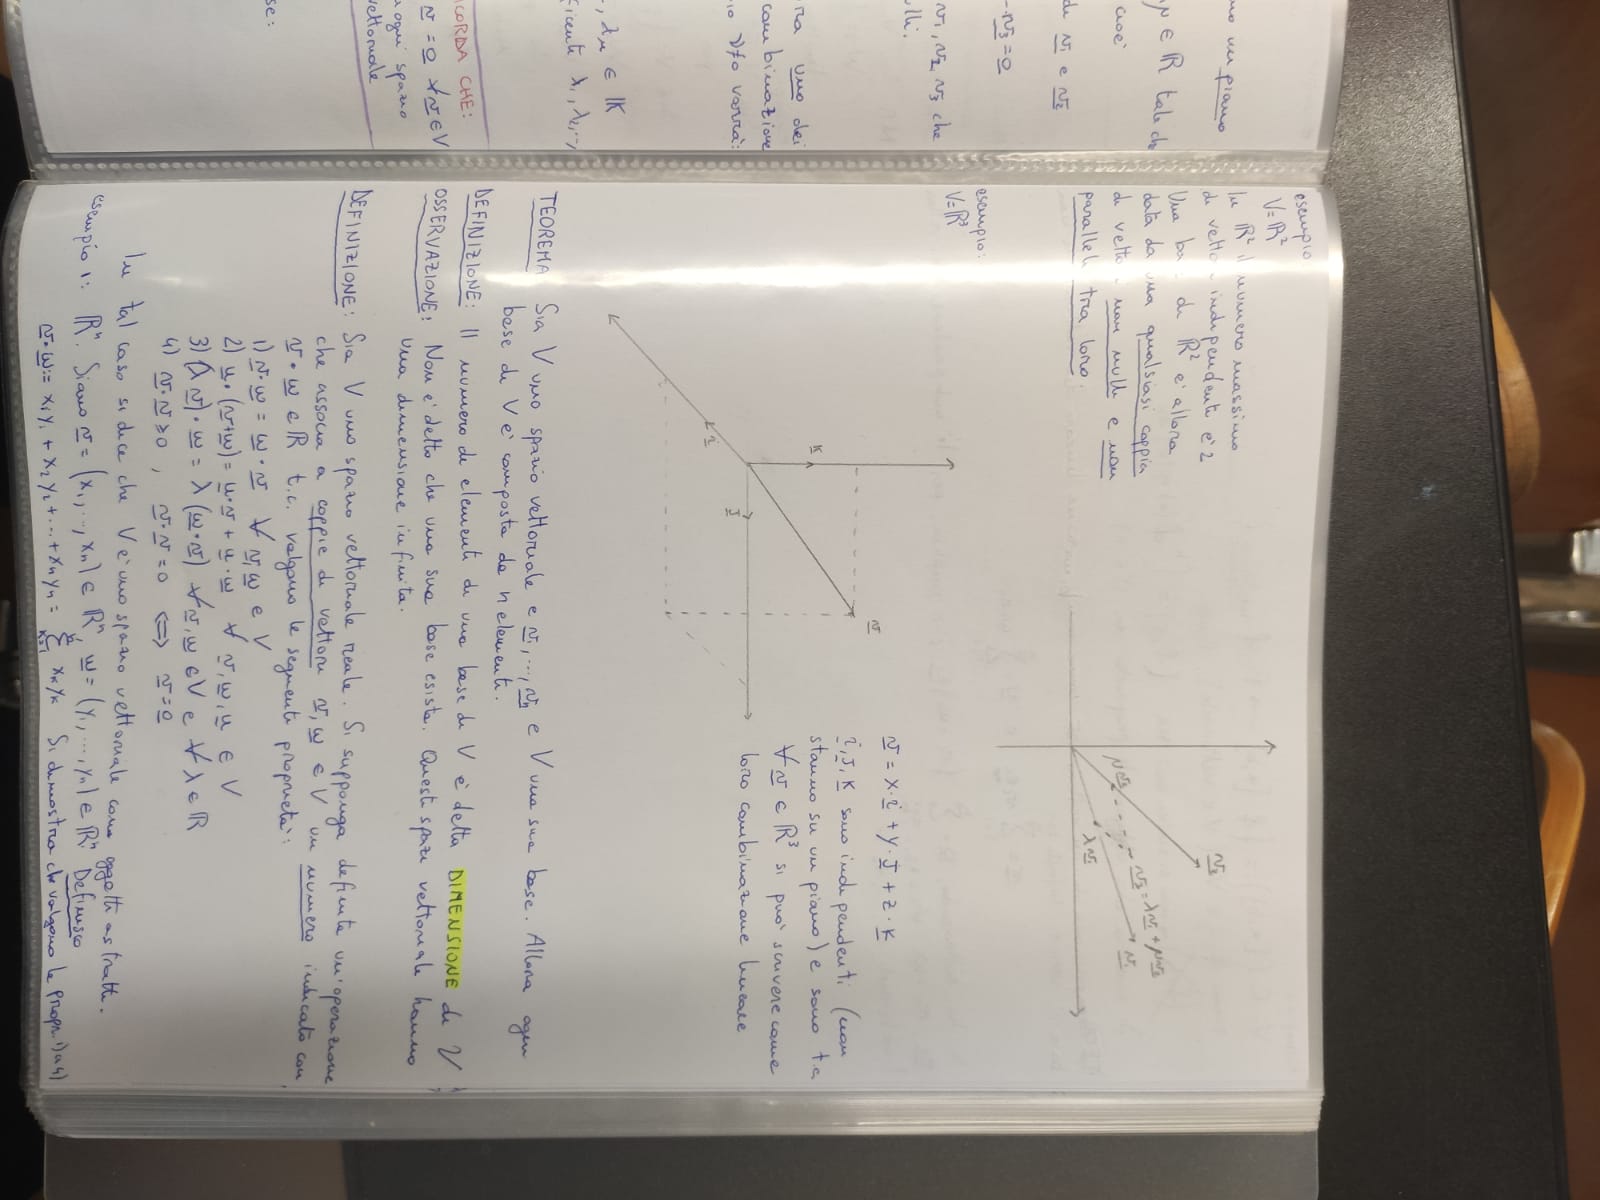 no un piano
μ ∈ ℝ tale che
cioè
di v₁ e v₂
-v₃ = 0
v₁, v₂ v₃ che
ulli.
uno dei
combinazione
λ≠0 vorrà:
λn ∈ 𝕂
ficienti λ₁, λ₂,..,
ICORDA CHE:
v = 0 ∀ v ∈ V
ogni spazio
vettoriale
se:
esempio
V = ℝ²
In ℝ² il numero massimo
di vettori indipendenti è 2
Una base di ℝ² è allora
data da una qualsiasi coppia
di vettori non nulli e non
paralleli tra loro:
v₂
μv₂
v₃ = λv₁ + μv₂
λv₁
v₁
esempio:
V = ℝ³
K
v
i
J
v = x·i + y·J + z·K
i, J, K sono indipendenti (non
stanno su un piano) e sono t.c
∀ v ∈ ℝ³ si può scrivere come
loro combinazione lineare
TEOREMA Sia V uno spazio vettoriale e v₁,..., vₙ e V una sua base. Allora ogni
base di V è composta da n elementi.
DEFINIZIONE: Il numero di elementi di una base di V è detta DIMENSIONE di V
OSSERVAZIONE: Non è detto che una sua base esista. Questi spazi vettoriale hanno
una dimensione infinita.
DEFINIZIONE: Sia V uno spazio vettoriale reale. Si supponga definita un'operazione
che associa a coppie di vettori v, w ∈ V un numero indicato con
v · w ∈ ℝ t.c. valgono le seguenti proprietà:
1) v·w = w·v ∀ v, w ∈ V
2) u·(v+w) = u·v + u·w ∀ v, w, u ∈ V
3) (λv)·w = λ(w·v) ∀ v, w ∈ V e ∀ λ ∈ ℝ
4) v·v ≥ 0 , v·v = 0 ⟺ v = 0
In tal caso si dice che V è uno spazio vettoriale con oggetti astratti.
esempio 1: ℝⁿ. Siano v = (x₁,.., xₙ) ∈ ℝⁿ w = (y₁, ..., yₙ) ∈ ℝⁿ Definisco
v·w := x₁y₁ + x₂y₂ + ... + xₙyₙ = Σ xₖyₖ Si dimostra che valgono le propr. 1) a 4)